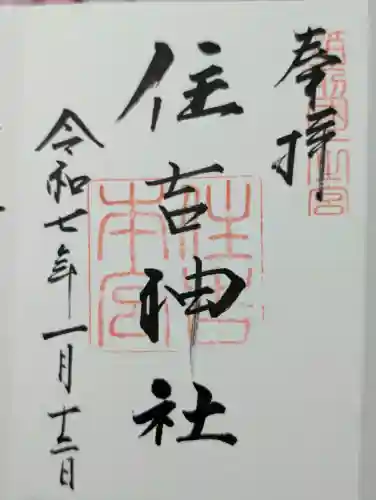 奉拝
住吉神社
住吉本宮
令和七年一月十三日